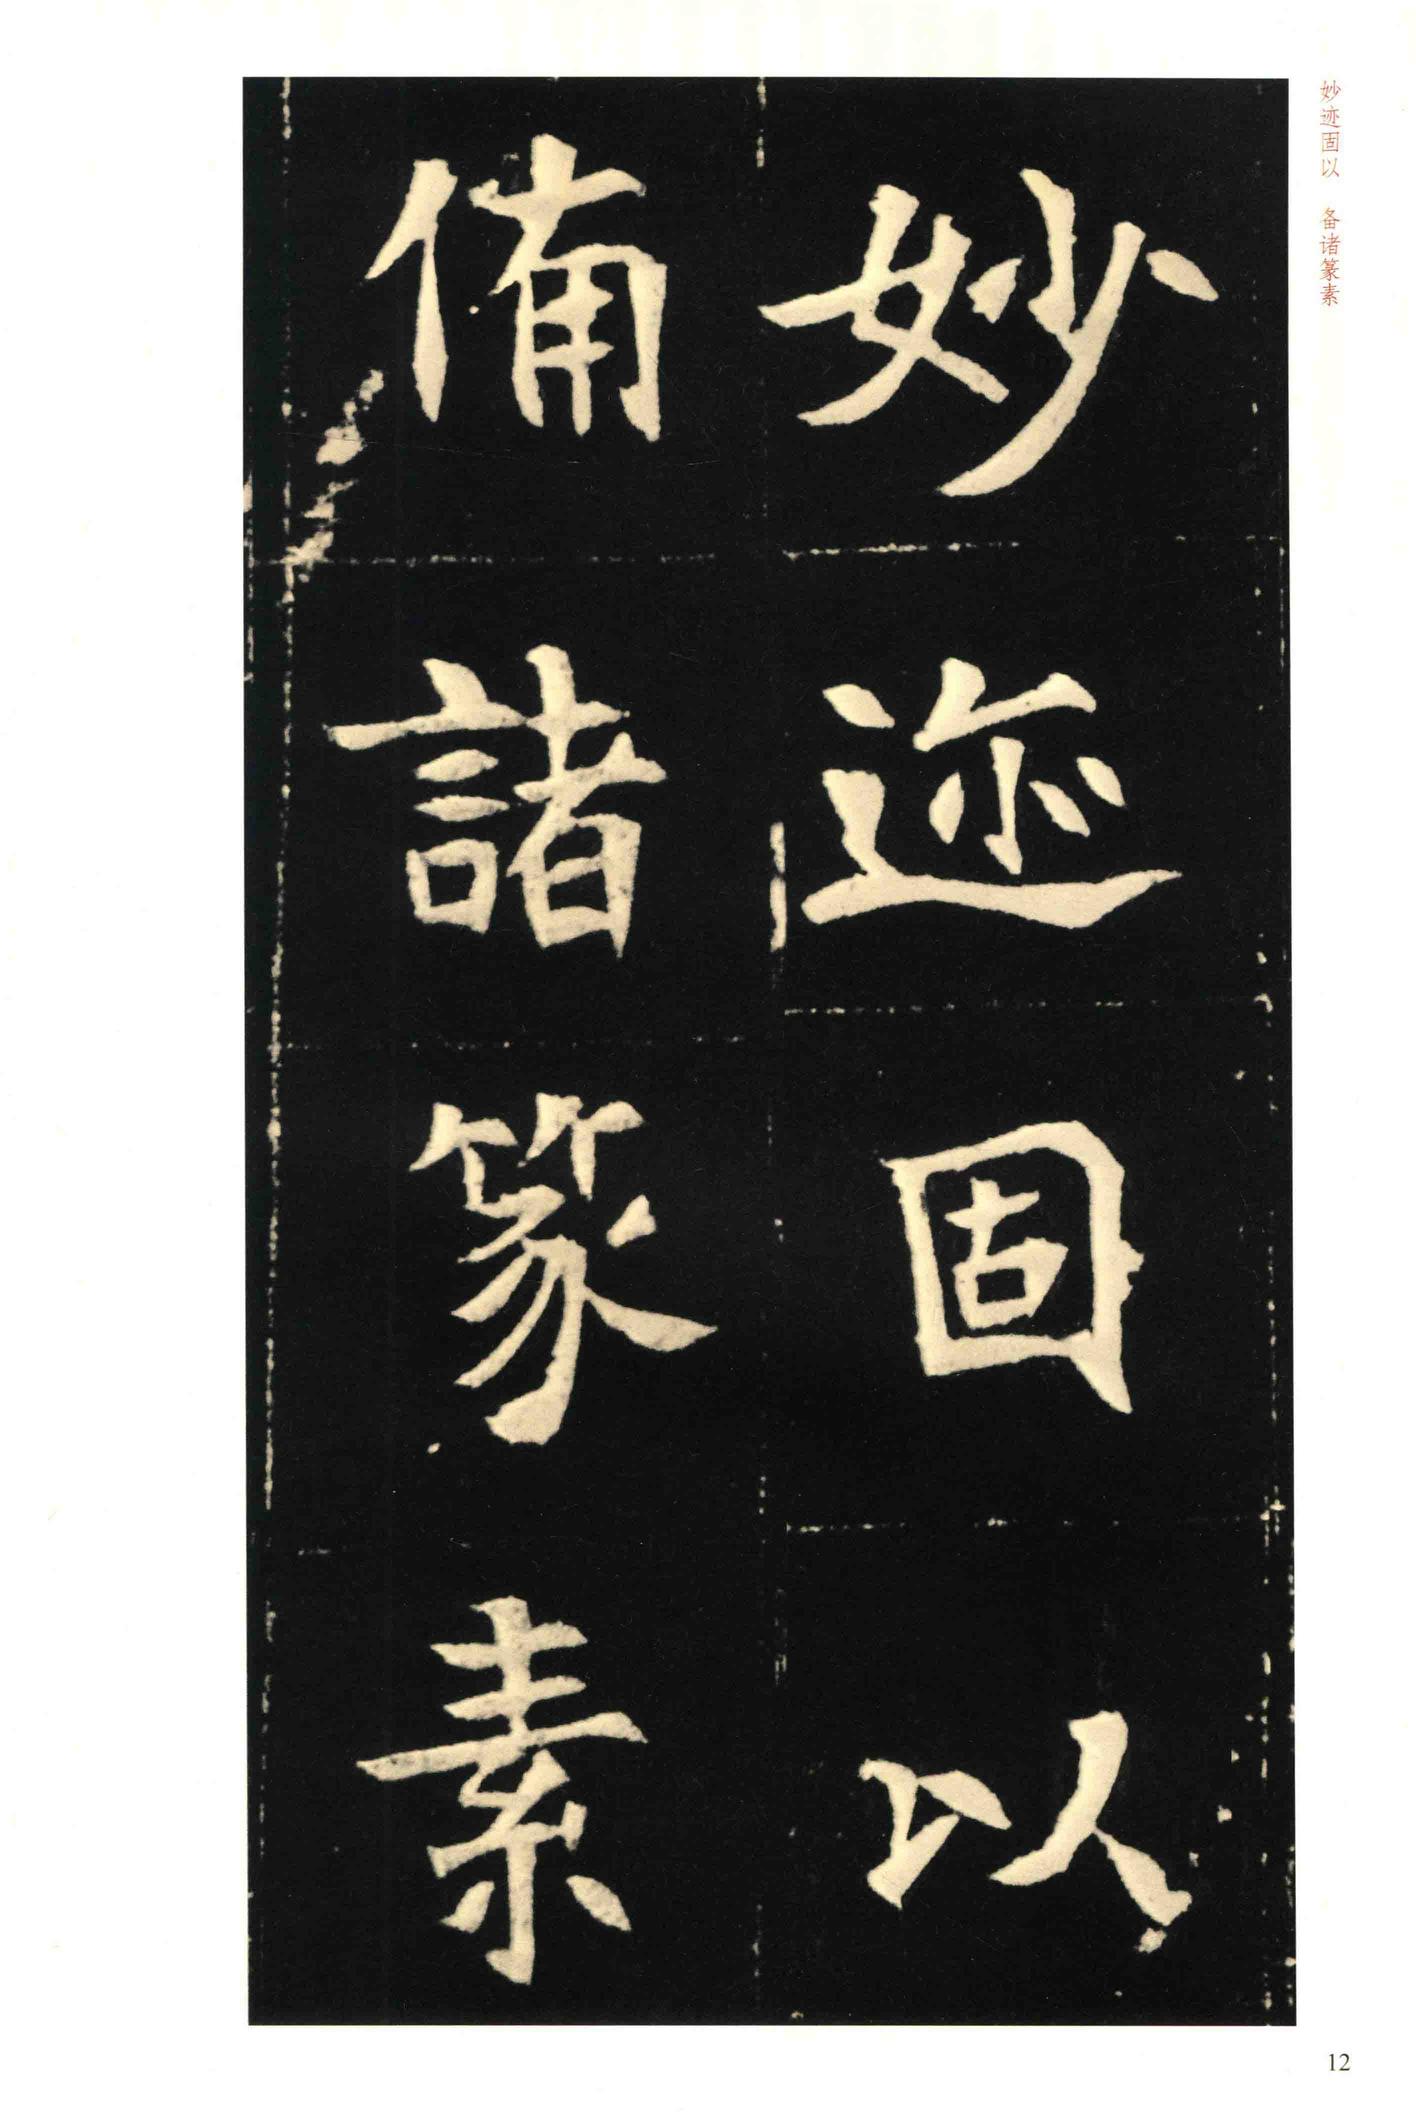 妙迹固以
俻諸篆素
妙迹固以 备诸篆素
12